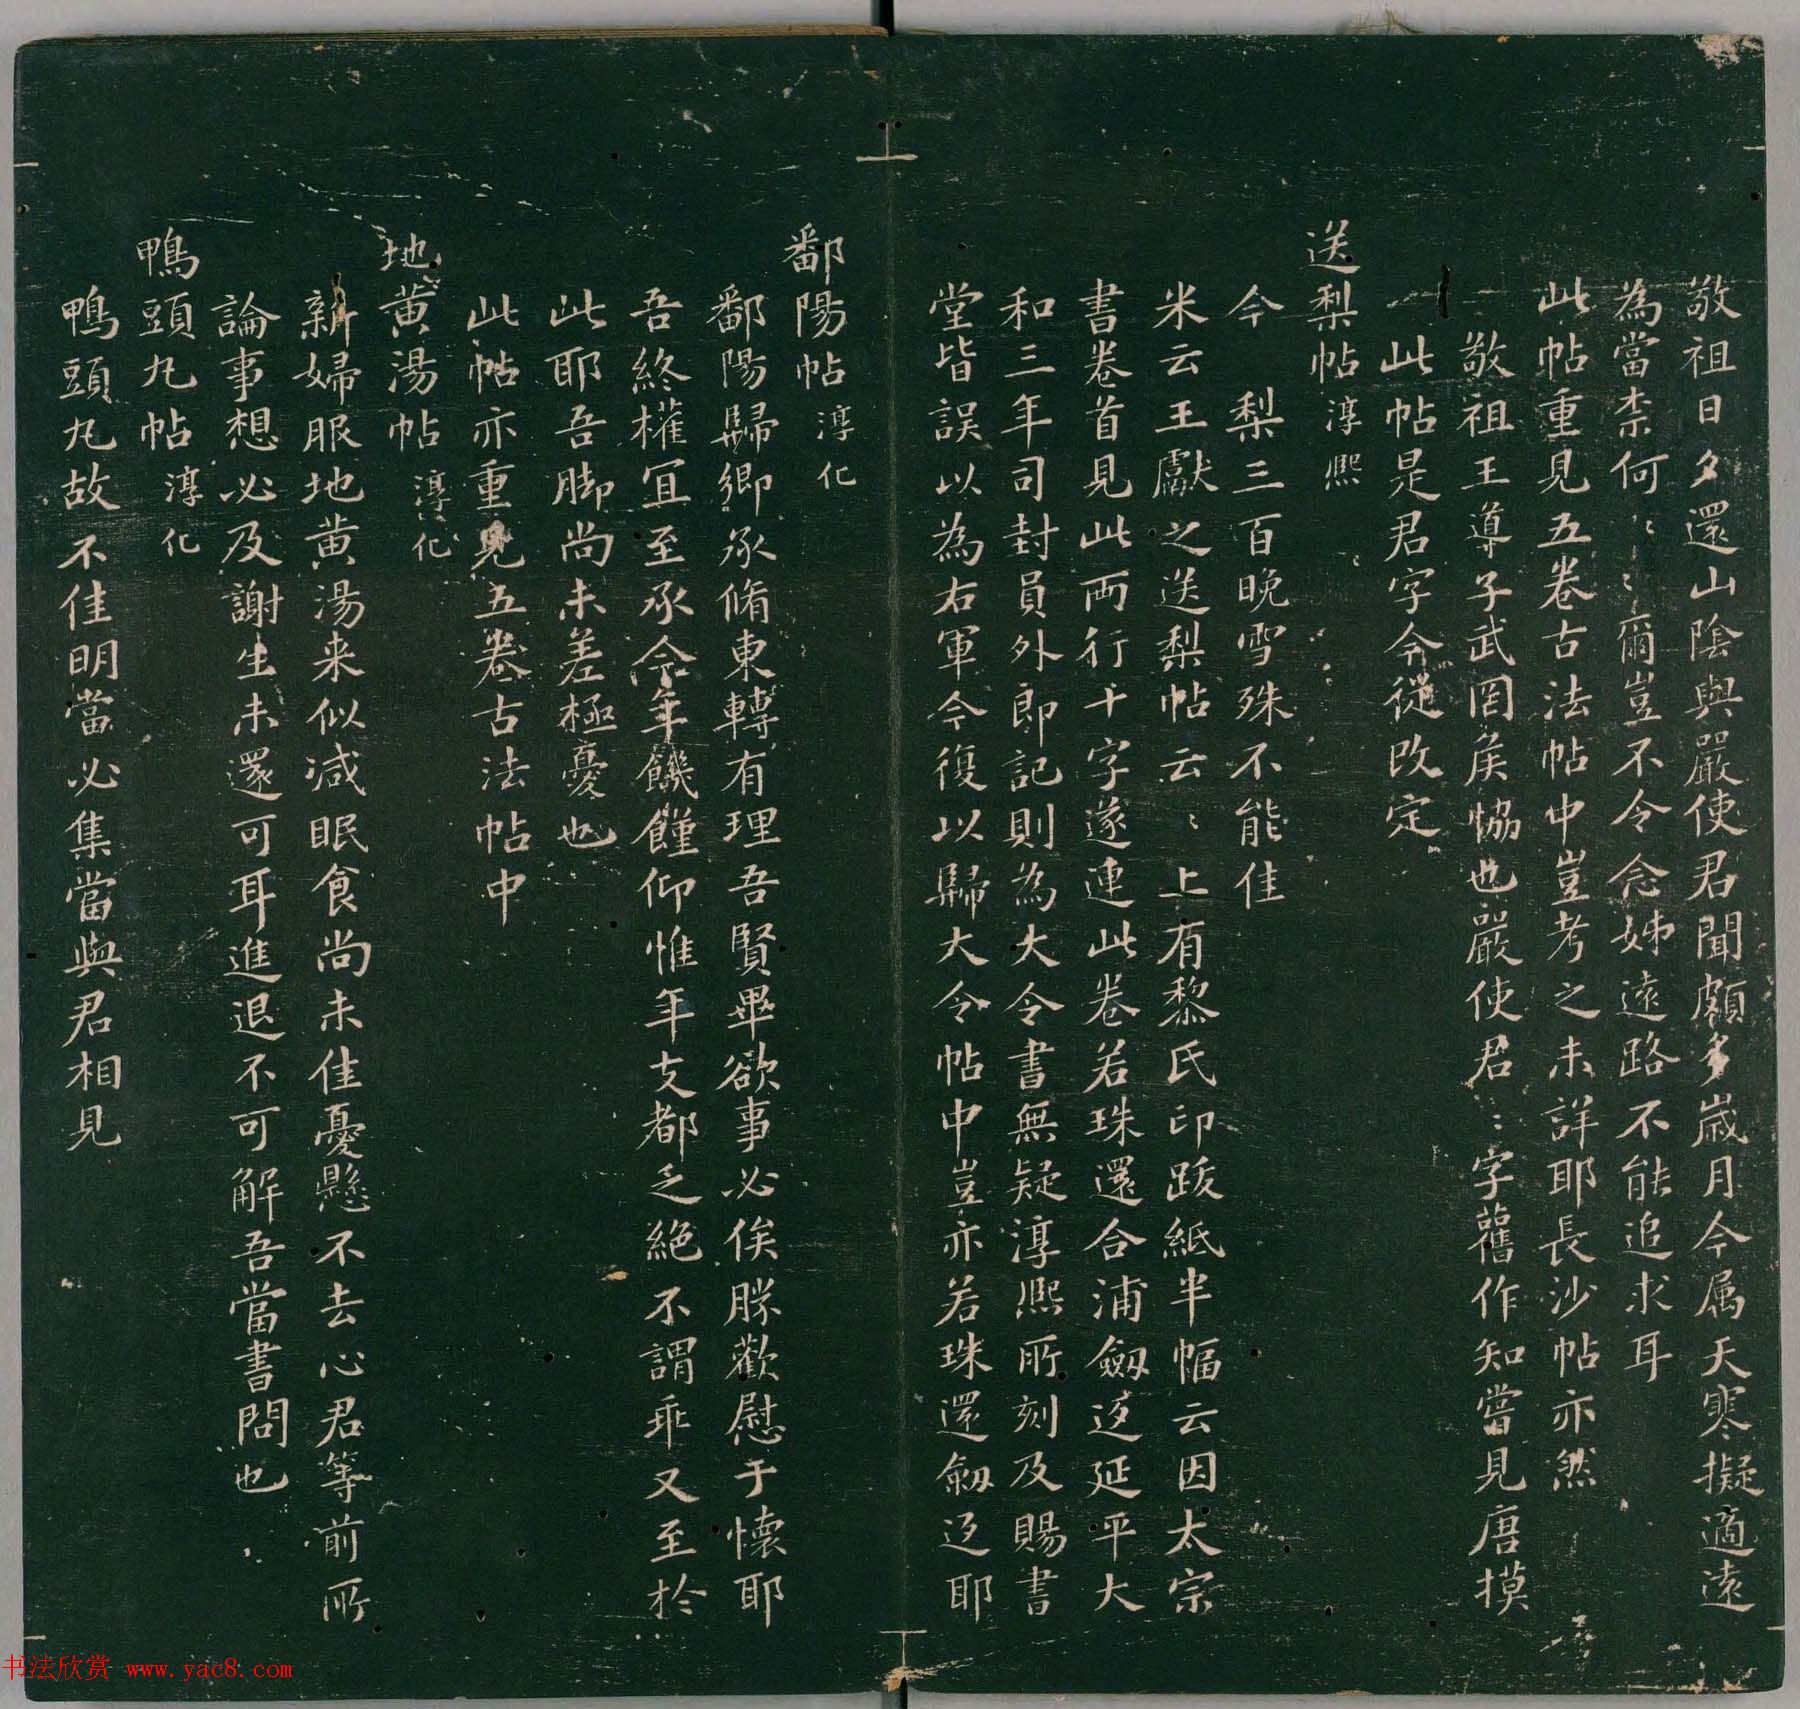 敬祖日夕還山陰與嚴使君聞頗多歲月今属天寒擬適遠
為當柰何〻〻爾豈不令念姊遠路不能追求耳
此帖重見五卷古法帖中豈考之未詳耶長沙帖亦然
敬祖王導子武罔矦恊也嚴使君〻字舊作知嘗見唐摸
此帖是君字今從改定
送梨帖淳熙
今 梨三百晚雪殊不能佳
米云王獻之送梨帖云〻上有黎氏印跋紙半幅云因太宗
書卷首見此兩行十字遂連此卷若珠還合浦劒迓延平大
和三年司封員外郎記則為大令書無疑淳熙所刻及賜書
堂皆誤以為右軍今復以歸大令帖中豈亦若珠還劒迓耶
鄱陽帖淳化
鄱陽歸鄉承脩東轉有理吾賢畢欲事必俟勝歡慰于懷耶
吾終權冝至承今年饑饉仰惟年支都乏絶不謂乖又至於
此耶吾脚尚未差極憂也
此帖亦重見五卷古法帖中
地黄湯帖淳化
新婦服地黄湯来似减眠食尚未佳憂懸不去心君等前所
論事想必及謝生未還可耳進退不可解吾當書問也
鴨頭丸帖淳化
鴨頭丸故不佳明當必集當與君相見
书法欣赏 www.yac8.com